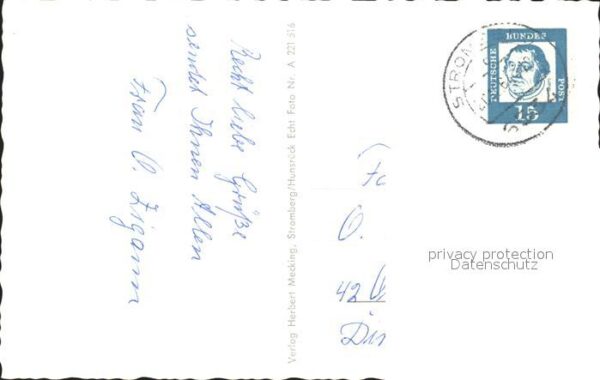 Recht liebe Grüße
sendet Ihnen Allen
Frau O. Zigann
Verlag Herbert Mecking, Stromberg/Hunsrück Echt Foto Nr. A 221 516
DEUTSCHE
BUNDES
POST
15
STROM
O.
42
privacy protection
Datenschutz